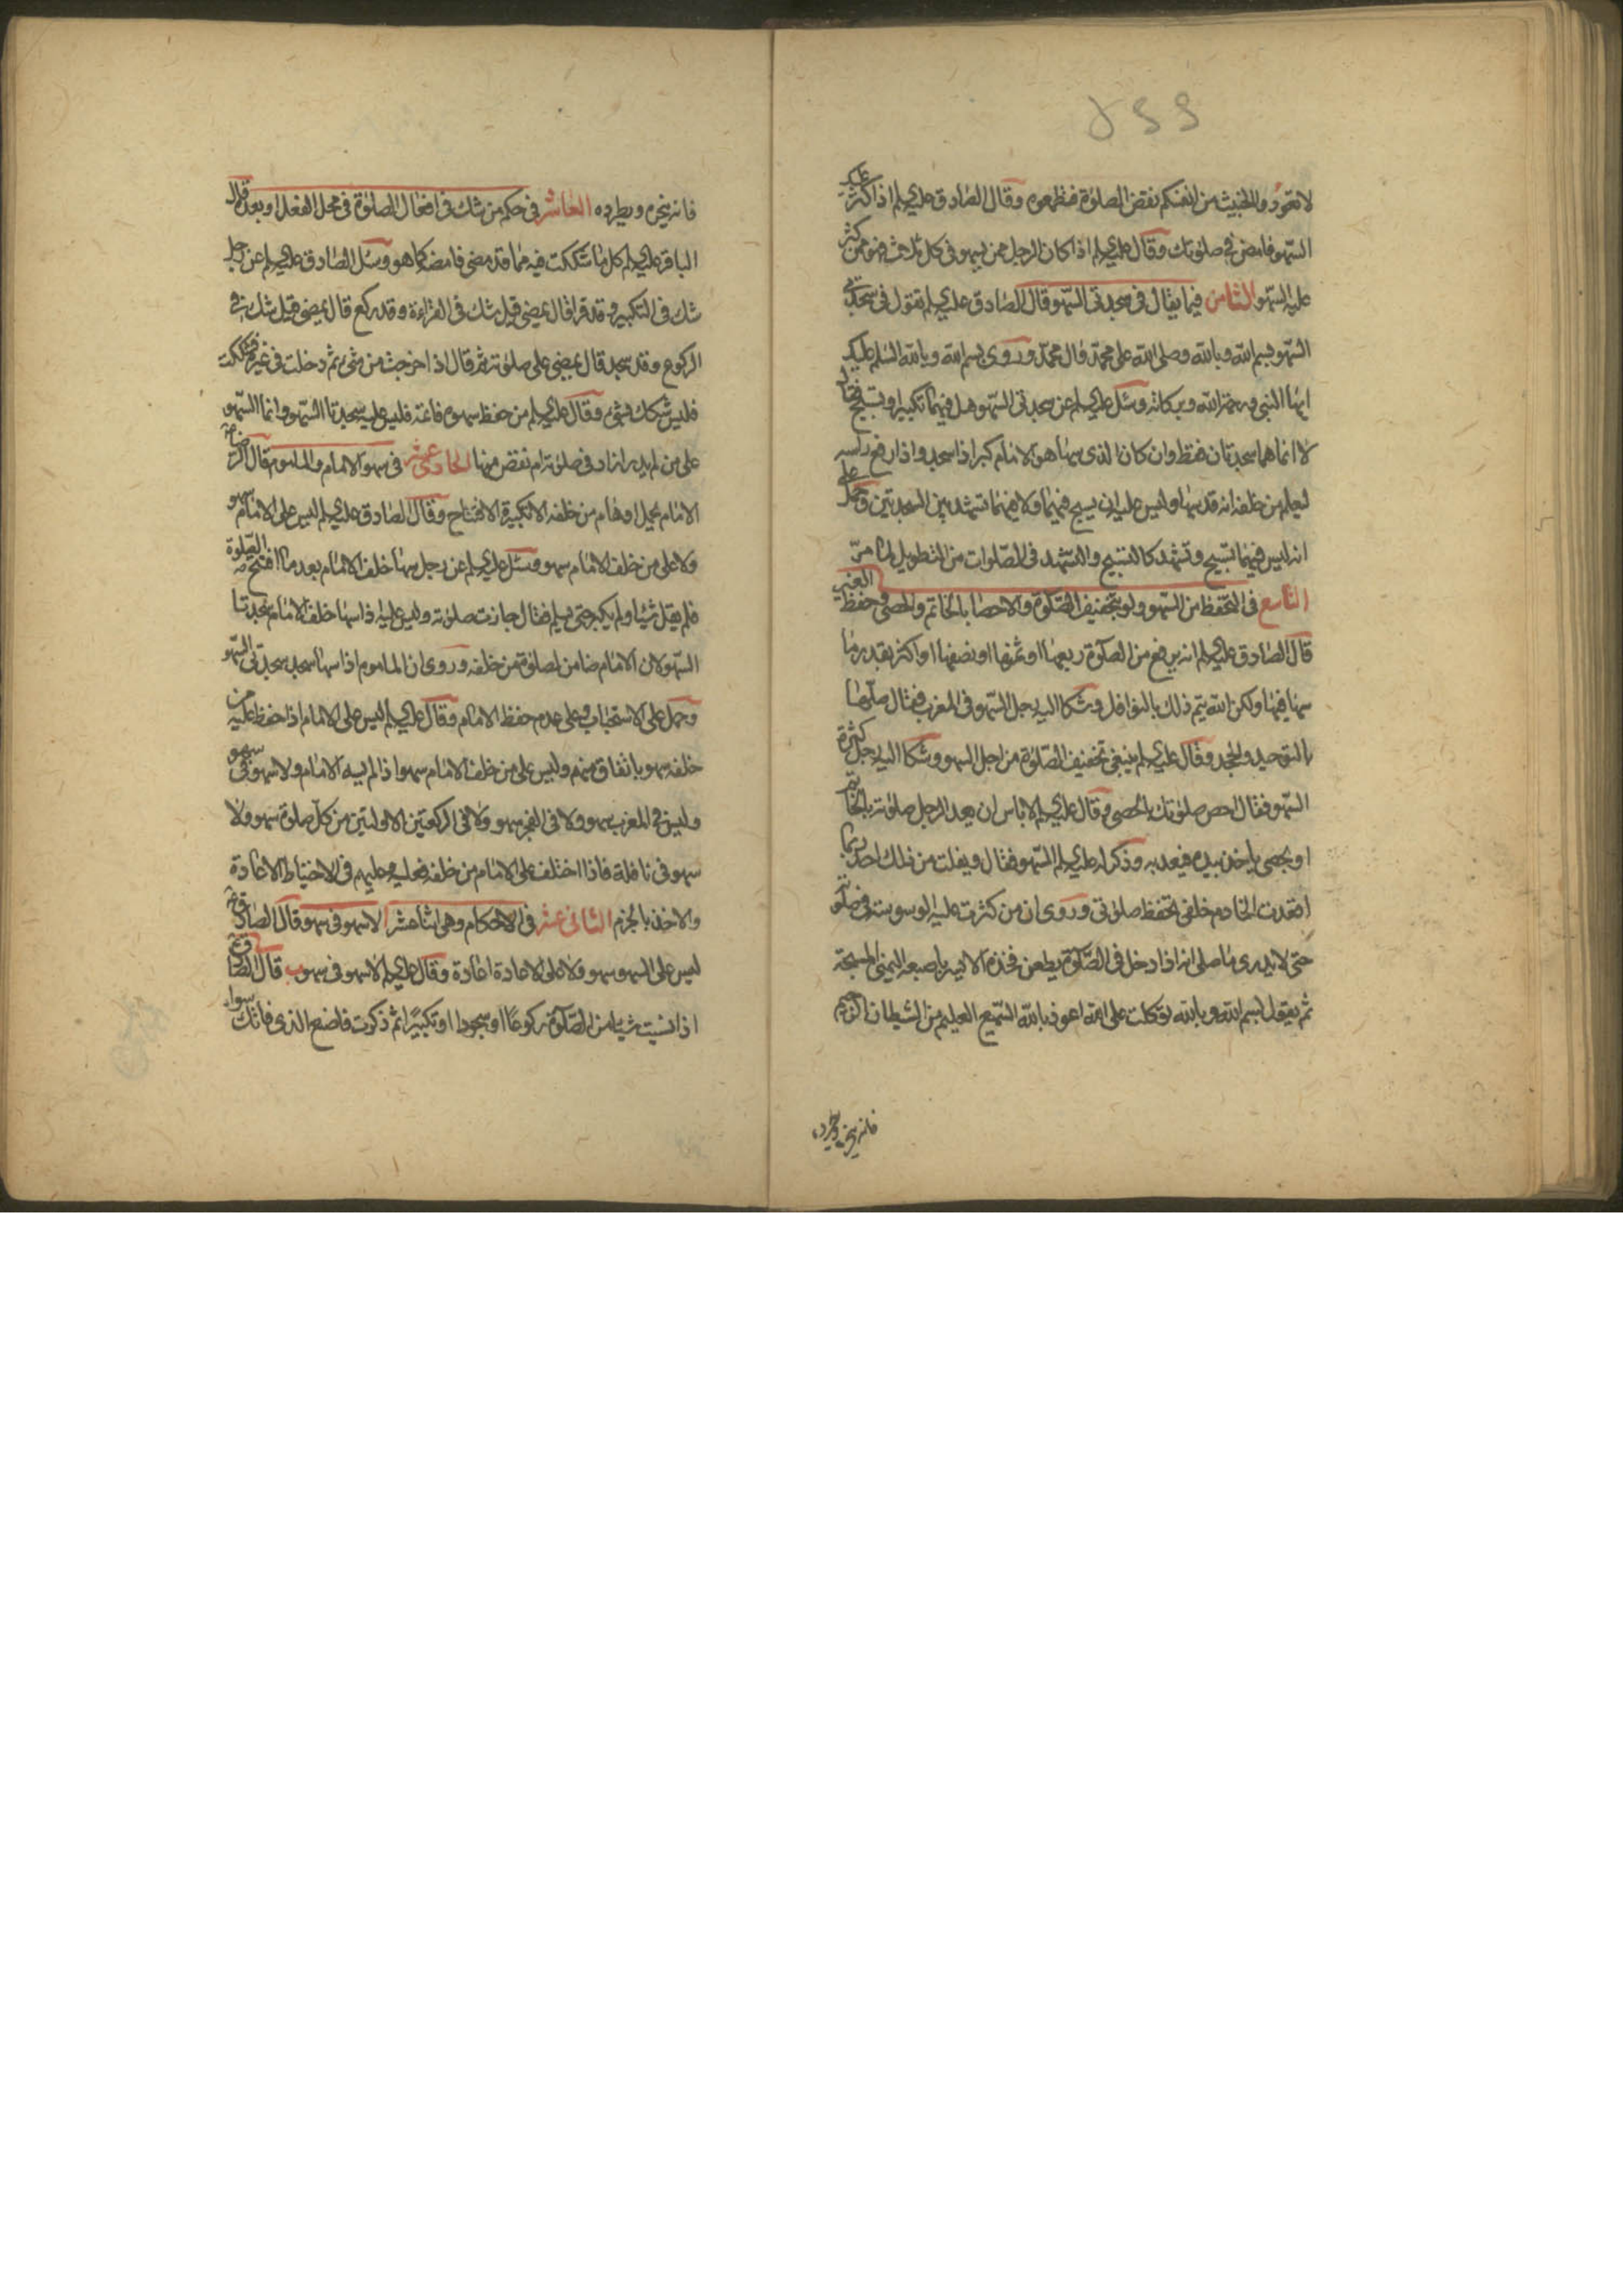 لا تعوّدوا الخبيث من انفسكم نقض الصلوة فتطمعوه وقال الصادق عليه السلم اذا كثر عليك
السّهو فامض في صلوتك وقال عليه السلم اذا كان الرجل ممن يسهو في كل ثلاث فهو ممن كثر
عليه السّهو الثامن فيما يقال في سجدتى السّهو قال الصادق عليه السلم تقول في سجدتى
السّهو بسم الله وبالله وصلى الله على محمّد وال محمّد وروى بسم الله وبالله السّلم عليك
ايها النبي ورحمة الله وبركاته وسئل عليه السلم عن سجدتى السّهو هل فيهما تكبير او تسبيح فقال
لا انما هما سجدتان فقط وان كان الذى سها هو الامام كبر اذا سجد واذا رفع راسه
ليعلم من خلفه انه قد سها وليس عليه ان يسبح فيهما ولا فيهما تشهد بين السجدتين وحمل على
انه ليس فيهما تسبيح وتشهد كالتسبيح والتشهد في الصّلوات من التطويل لما مرّ
التاسع في التحفظ من السّهو ولو بتخفيف الصّلوة والاحصا بالخاتم والحصى وحفظ الغير
قال الصادق عليه السلم انه يرفع من الصّلوة ربعها او ثمنها او نصفها او اكثر بقدر ما
سها فيها ولكن الله يتم ذلك بالنوافل وشكا اليه رجل السّهو في المغرب فقال صلّها
بالتوحيد والجحد وقال عليه السلم ينبغى تخفيف الصّلوة من اجل السهو وشكا اليه رجل كثرة
السّهو فقال احص صلوتك بالحصى وقال عليه السلم لا باس ان يعد الرجل صلوته بالخاتم
او بحصى ياخذ بيده فيعد به وذكر له عليه السلم السّهو فقال ويفلت من ذلك احد ربما
اقعدت الخادم خلفى تحفظ صلوتى وروى ان من كثرت عليه الوسوسة في صلوته
حتى لا يدرى ما صلى انه اذا دخل في الصّلوة يطعن فخذه الايسر باصبعه اليمنى المسبحة
ثم يقول بسم الله وبالله توكلت على الله اعوذ بالله السّميع العليم من الشيطان الرجيم
فانه ينحره ويطرده
فانه ينحره ويطرده العاشر في حكم من شك في افعال الصلوة في محل الفعل او بعده قال
الباقر عليه السلم كل ما شككت فيه مما قد مضى فامضه كما هو وسئل الصادق عليه السلم عن رجل
شك في التكبير وقد قرا قال يمضى قيل شك في القراءة وقد ركع قال يمضى قيل شك في
الركوع وقد سجد قال يمضى على صلوته ثم قال اذا خرجت من شئ ثم دخلت في غيره فشككت
فليس شكك بشئ وقال عليه السلم من حفظ سهوه فاتمه فليس عليه سجدتا السّهو وانما السّهو
على من لم يدر ازاد في صلوته ام نقص منها الحادى عشر في سهو الامام والماموم قال الرضا
الامام يحمل اوهام من خلفه الا تكبيرة الافتتاح وقال الصادق عليه السلم ليس على الامام سهو
ولا على من خلف الامام سهو وسئل عليه السلم عن رجل سها خلف الامام بعد ما افتتح الصّلوة
فلم يقل شيئا ولم يكبر حتى يسلم فقال جازت صلوته وليس عليه اذا سها خلف الامام سجدتا
السّهو لان الامام ضامن لصلوة من خلفه وروى ان الماموم اذا سها سجد سجدتى السّهو
وحمل على الاستحباب وعلى عدم حفظ الامام وقال عليه السلم ليس على الامام اذا حفظ عليه من
خلفه سهو باتفاق منهم وليس على من خلف الامام سهو اذا لم يسه الامام ولا سهو في سهو
وليس في المغرب سهو ولا في الفجر سهو ولا في الركعتين الاولتين من كل صلوة سهو ولا
سهو في نافلة فاذا اختلف على الامام من خلفه فعليه وعليهم في الاحتياط الاعادة
والاخذ بالجزم الثانى عشر في الاحكام وهى اثنا عشر ا لا سهو في سهو قال الصادق
ليس على السهو سهو ولا على الاعادة اعادة وقال عليه السلم لا سهو في سهو ب قال الصادق
اذا نسيت شيئا من الصّلوة ركوعا او سجودا او تكبيرا ثم ذكرت فاصنع الذى فاتك سواء